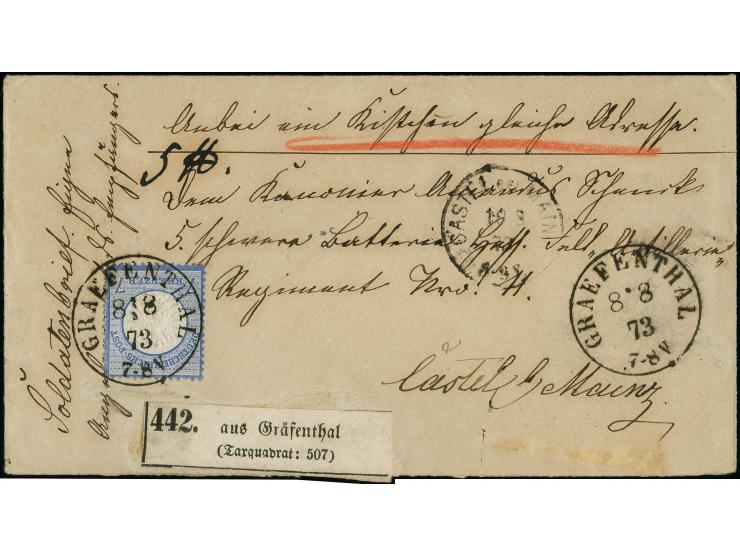 Anbei ein Kistchen gleiche Adresse.
5 ℔.
Dem Kanonier Amandus Schenck
5. schwere Batterie Hess. Feld-Artillerie-
Regiment Nro. 11.
Castel b/ Mainz.
Soldatenbrief. Eigene
Angelegenheit des Empfängers.
CASTEL MAINZ
GRAEFENTHAL
8 8
73
7-8V
GRAEFENTHAL
8 8
73
7-8V
7
KREUZER
DEUTSCHE REICHS-POST
442.
aus Gräfenthal
(Taxquadrat: 507)